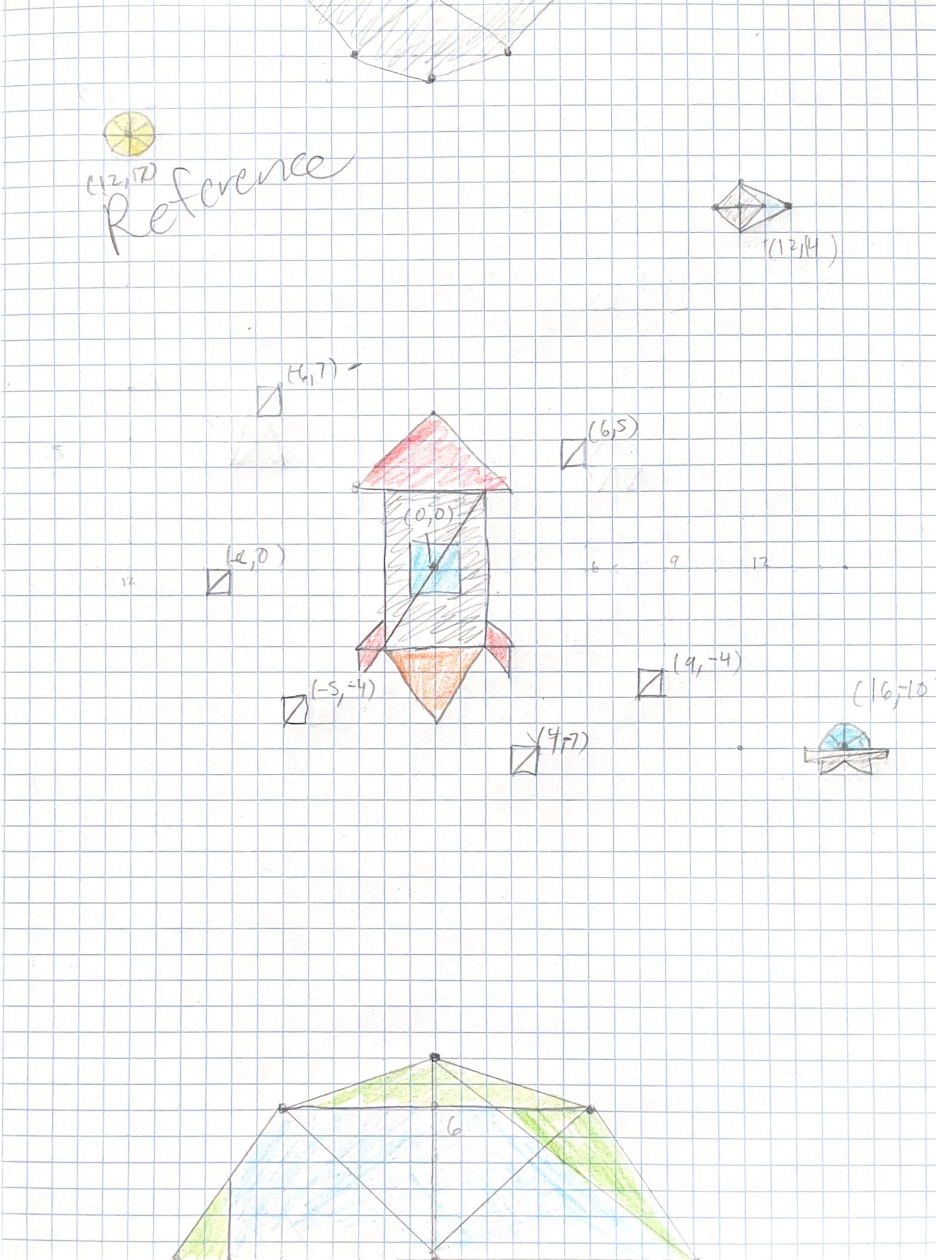 (12,17)
Reference
(12,14)
(-6,7)
(6,5)
(0,0)
6 9 12
12
(-5,-4)
(9,-4)
(16,-10
(4,-7)
6